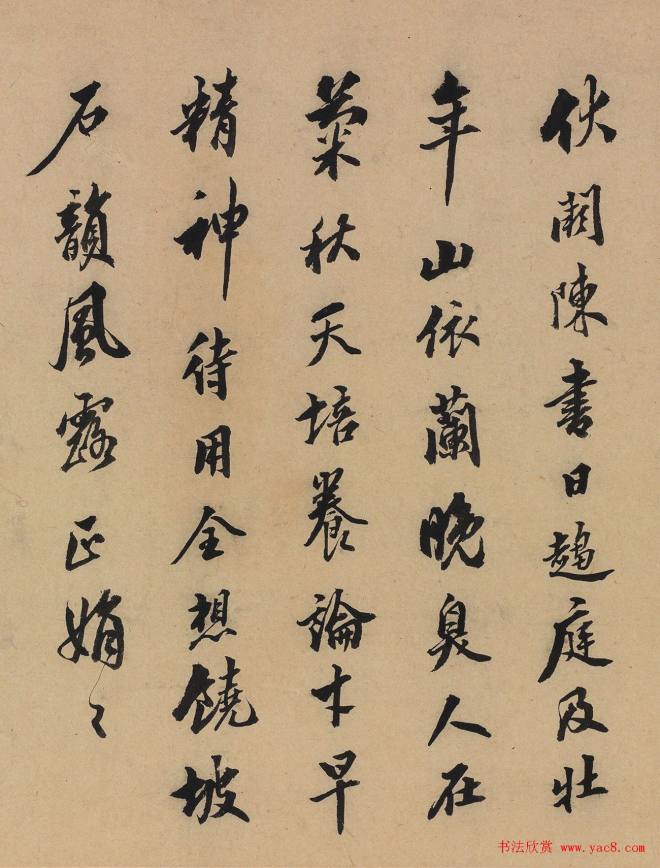 伏闕陳書日趨庭及壯
年山依蘭晚臭人在
菊秋天培養論才早
精神待用全想饒坡
石韻風露正娟〻
书法欣赏 www.yac8.com